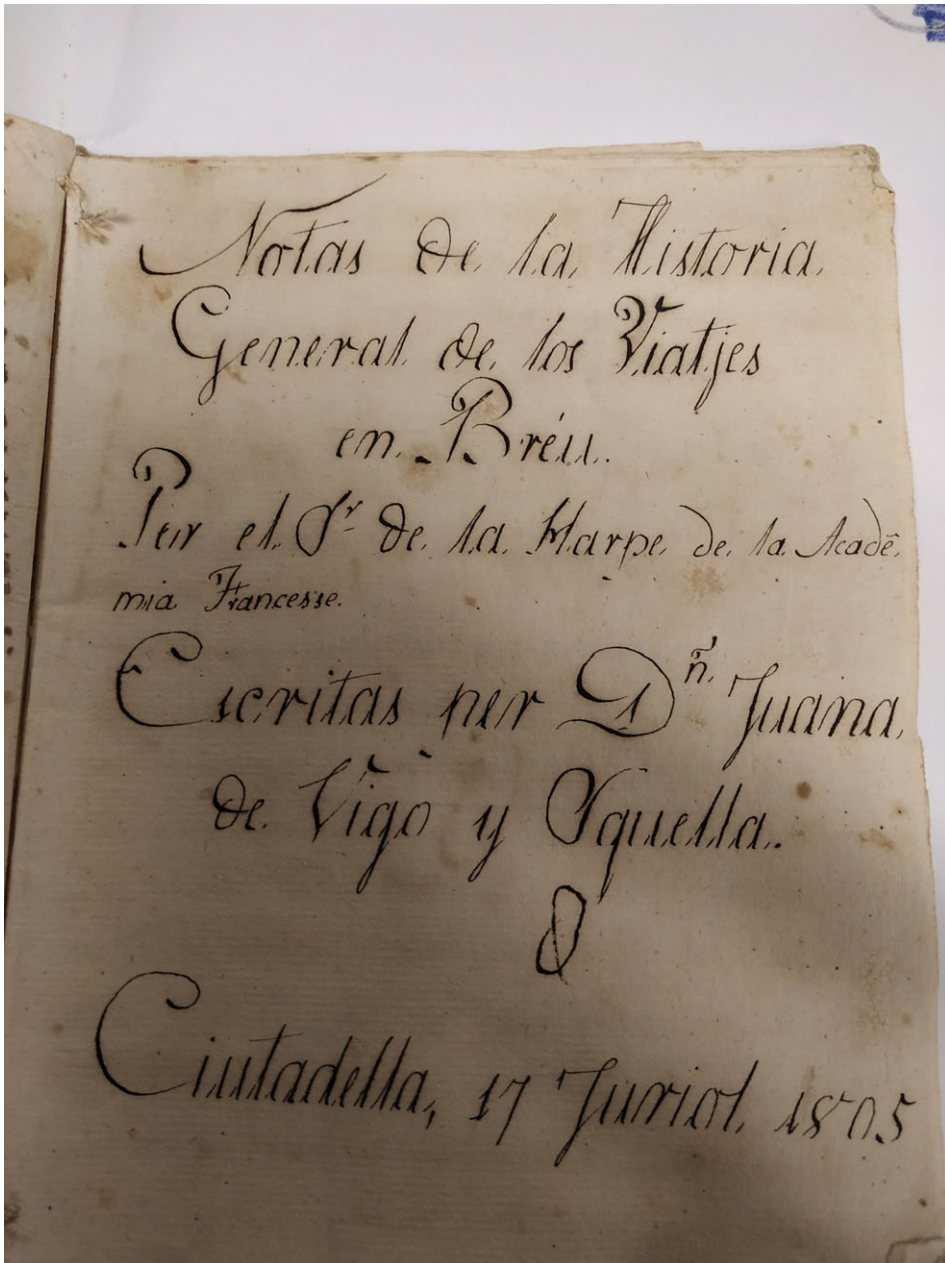 Notas de la Historia
General de los Viatjes
en Bréu.
Per el Sr. de la Harpe de la Acadé-
mia Francesse.
Escritas per Dñ. Juana
de Vigo y Squella.
Ciutadella, 17 Juriol 1805